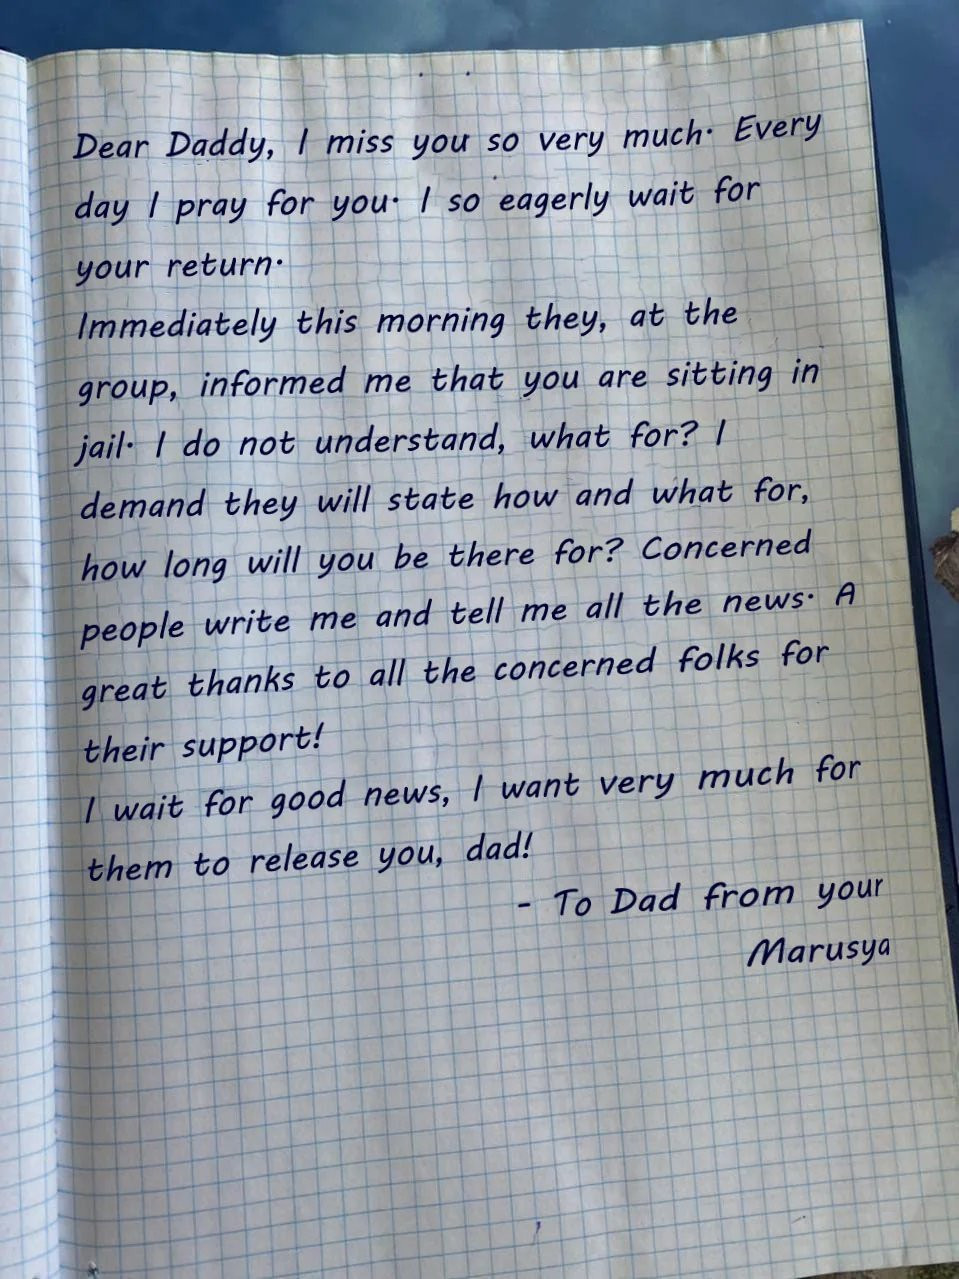 Dear Daddy, I miss you so very much. Every
day I pray for you. I so eagerly wait for
your return.
Immediately this morning they, at the
group, informed me that you are sitting in
jail. I do not understand, what for? I
demand they will state how and what for,
how long will you be there for? Concerned
people write me and tell me all the news. A
great thanks to all the concerned folks for
their support!
I wait for good news, I want very much for
them to release you, dad!
- To Dad from your
Marusya